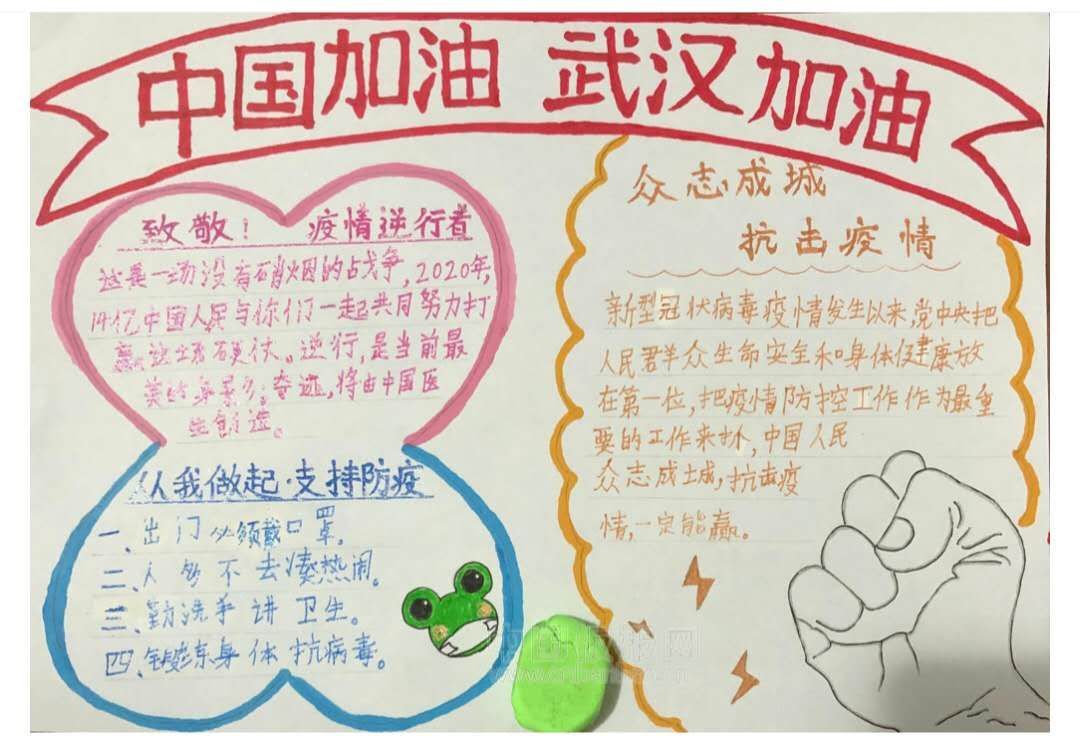 中国加油 武汉加油
致敬！ 疫情逆行者
这是一场没有硝烟的战争,2020年,
14亿中国人民与你们一起共同努力打
赢这场硬仗。逆行,是当前最
美的身影;奇迹,将由中国医
生创造。
从我做起·支持防疫
一、出门必须戴口罩。
二、人多不去凑热闹。
三、勤洗手讲卫生。
四、锻炼身体抗病毒。
众志成城
抗击疫情
新型冠状病毒疫情发生以来,党中央把
人民群众生命安全和身体健康放
在第一位,把疫情防控工作作为最重
要的工作来抓,中国人民
众志成城,抗击疫
情,一定能赢。